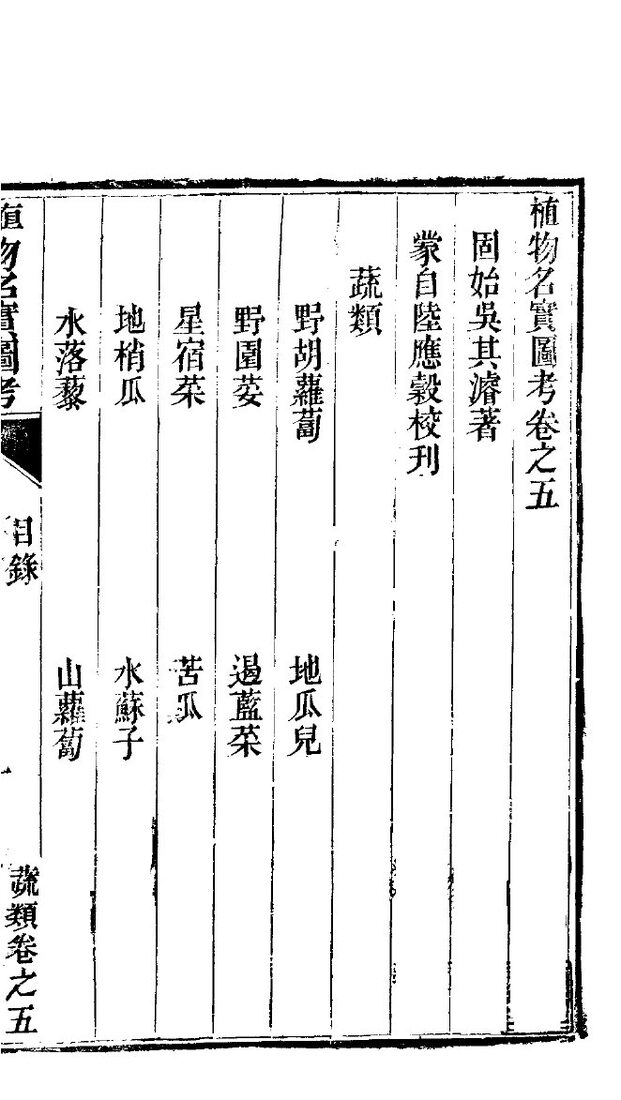 植物名實圖考卷之五
固始吳其濬著
蒙自陸應穀校刊
蔬類
野胡蘿蔔　地瓜兒
野園荽　遏藍菜
星宿菜　苦瓜
地梢瓜　水蘇子
水落藜　山蘿蔔
植物名實圖考　目錄　一　蔬類卷之五